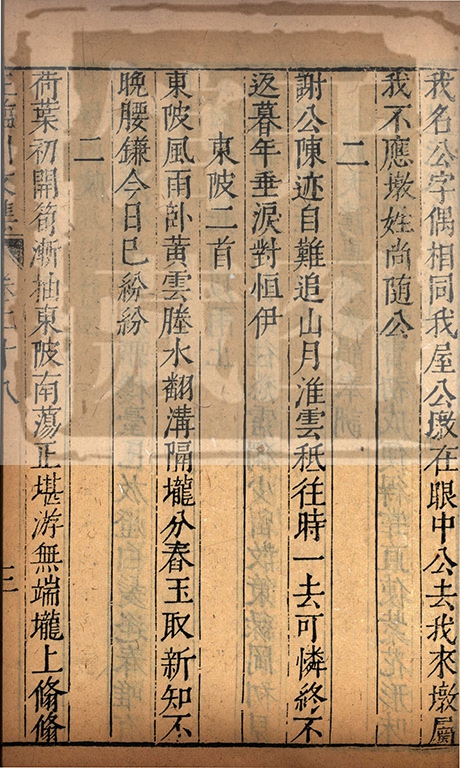 我名公字偶相同我屋公墩在眼中公去我來墩屬
我不應墩姓尚随公
二
謝公陳迹自難追山月淮雲秪往時一去可憐終不
返暮年垂淚對恒伊
東陂二首
東陂風雨臥黃雲塍水翻溝隔壠分春玉取新知不
晚腰鎌今日巳紛紛
二
荷葉初開筍漸抽東陂南蕩正堪游無端壠上翛翛
王臨川文集 卷二十八 三